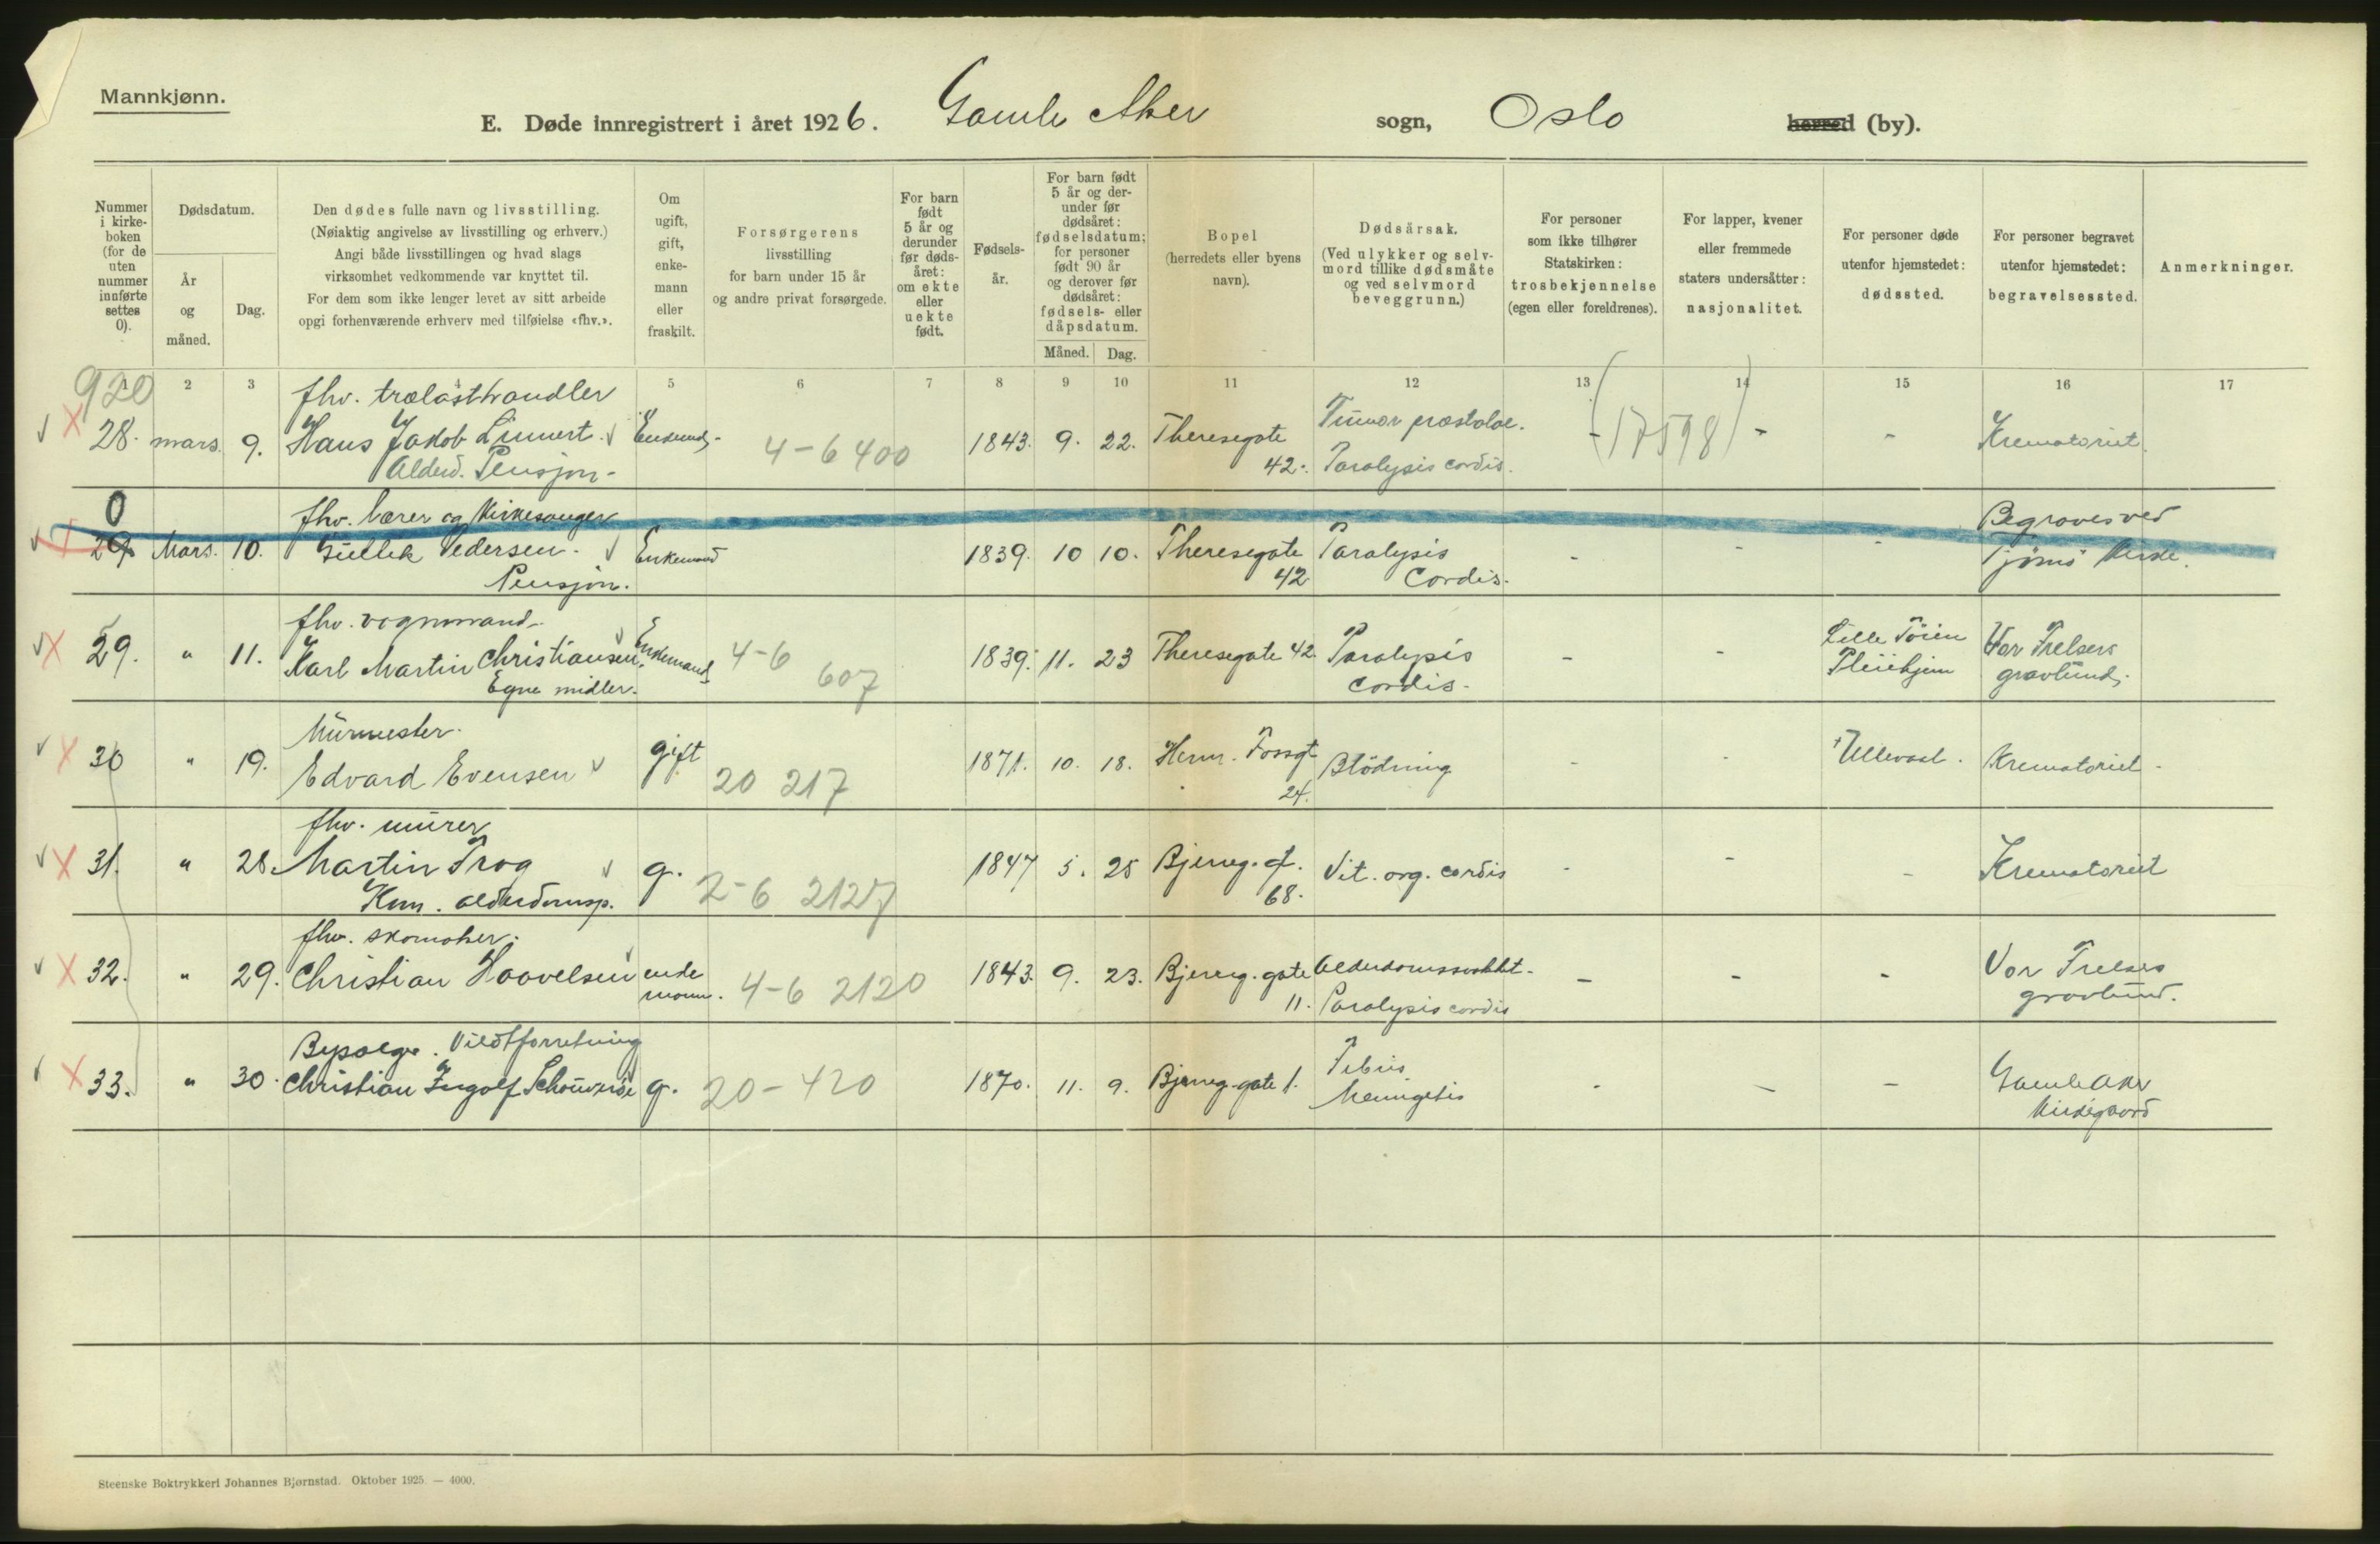 Mannkjønn.
E. Døde innregistrert i året 1926. Gamle Aker sogn, Oslo herred (by).
Nummer i kirke-boken (for de uten nummer innførte settes 0).
Dødsdatum.
År og måned.
Dag.
Den dødes fulle navn og livsstilling.
(Nøiaktig angivelse av livsstilling og erhverv.)
Angi både livsstillingen og hvad slags
virksomhet vedkommende var knyttet til.
For dem som ikke lenger levet av sitt arbeide
opgi forhenværende erhverv med tilføielse «fhv.».
Om ugift, gift, enke-mann eller fraskilt.
Forsørgerens
livsstilling
for barn under 15 år
og andre privat forsørgede.
For barn født 5 år og derunder før døds-året: om ekte eller uekte født.
Fødsels-år.
For barn født 5 år og der-under før dødsåret: fødselsdatum; for personer født 90 år og derover før dødsåret: fødsels- eller dåpsdatum.
Måned. Dag.
Bopel
(herredets eller byens
navn).
Dødsårsak.
(Ved ulykker og selv-
mord tillike dødsmåte
og ved selvmord
beveggrunn.)
For personer
som ikke tilhører
Statskirken:
trosbekjennelse
(egen eller foreldrenes).
For lapper, kvener
eller fremmede
staters undersåtter:
nasjonalitet.
For personer døde
utenfor hjemstedet:
dødssted.
For personer begravet
utenfor hjemstedet:
begravelsessted.
Anmerkninger.
1 2 3 4 5 6 7 8 9 10 11 12 13 14 15 16 17
920
fhv. trælasthandler
28. mars. 9. Hans Jakob Linnert. 4-6 400 1843. 9. 22. Theresegate 42. Tumor prostatae. Paralysis cordis. (17598) - - Krematoriet.
Alderd. Pensjon-
0
fhv. lærer og Kirkesanger
29. Mars. 10. Gullik Pedersen. Enkemand 1839. 10 10. Theresegate 42 Paralysis Cordis. - - - Begraves ved Tjømø Kirke.
Pensjon.
fhv. vognmand.
29. " 11. Karl Martin Christiansen. Enkemand 4-6 607 1839. 11. 23 Theresegate 42. Paralysis cordis. - - Lille Töien Pleiehjem Vor Frelsers gravlund.
Egne midler.
Murmester.
30 " 19. Edvard Evensen gift 20 217 1871. 10. 18. Herm. Fossgt 24. Blödning - - Ullevaal. Krematoriet.
fhv. murer
31. " 28. Martin Frog g. 2-6 2127 1847 5. 25 Bjerreg. gt. 68. Vit. org. cordis - - - Krematoriet
Kom. alderdomsp.
fhv. skomaker.
32. " 29. Christian Haavelsen enke mann. 4-6 2120 1843. 9. 23. Bjerreg. gate 11. Alderdomssvakht. Paralysis cordis - - - Vor Frelsers gravlund.
Vildtforretning
33. " 30. Christian Ingolf g. 20-420 1870. 11. 9. Bjerreg. gate 1. Febris Meningitis - - - Gamle Aker Kirkegaard
Steenske Boktrykkeri Johannes Bjørnstad. Oktober 1925. — 4000.